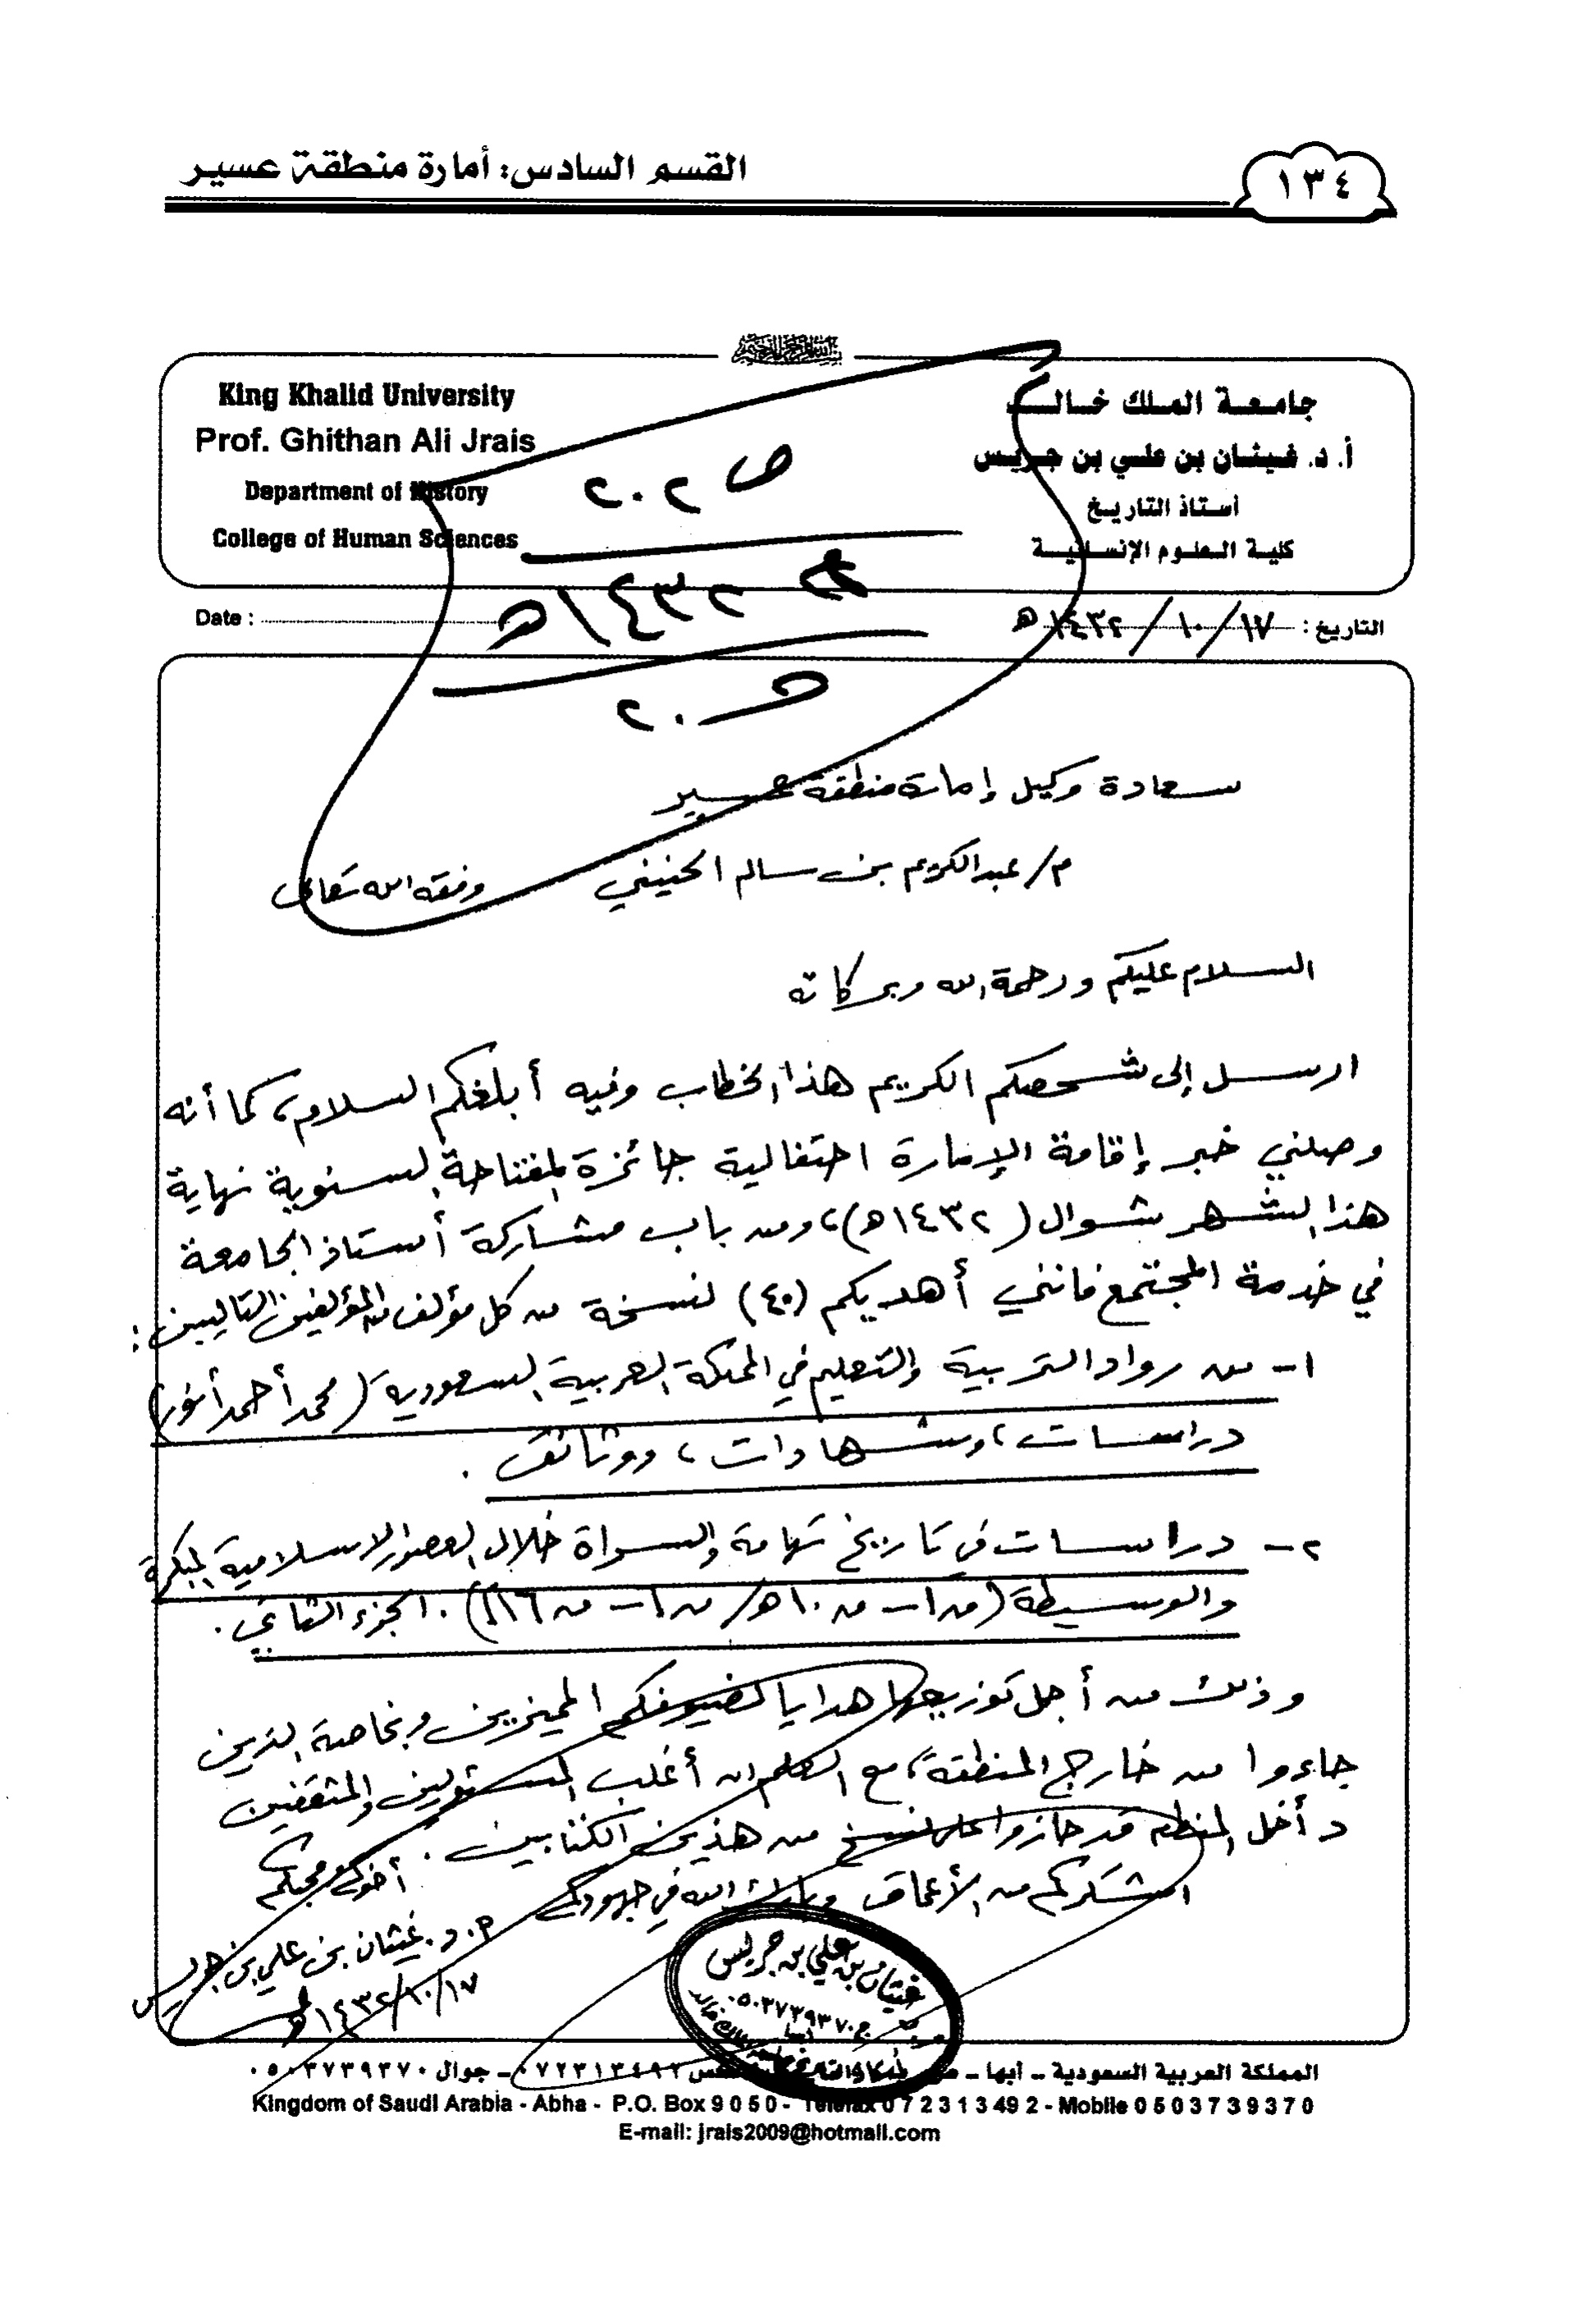 القسم السادس: أمارة منطقة عسير
١٣٤
King Khalid University
Prof. Ghithan Ali Jrais
Department of History
College of Human Sciences
جامعة الملك خالد
أ. د. غيثان بن علي بن جريس
أستاذ التاريخ
كلية العلوم الإنسانية
ص ٢٠٢
١٤٣٢ هـ
٢٠
Date :
التاريخ : ١٧ / ١٠ / ١٤٣٢ هـ
سعادة وكيل إمارة منطقة عسير
م/ عبدالكريم بن سالم الحنيني وفقه الله تعالى
السلام عليكم ورحمة الله وبركاته
ارسل إلى شخصكم الكريم هذا الخطاب وفيه أبلغكم السلام، كما أنه
وصلني خبر إقامة الإمارة احتفالية جائزة المفتاحة السنوية نهاية
هذا الشهر شوال (١٤٣٢هـ)، ومن باب مشاركة أستاذ الجامعة
في خدمة المجتمع فانني أهديكم (٤٠) نسخة من كل مؤلف من المؤلفين التاليين :
١- من رواد التربية والتعليم في المملكة العربية السعودية (محمد أحمد أنور)
دراسات، وشهادات، ووثائق .
٢- دراسات في تاريخ تهامة والسراة خلال العصور الاسلامية المبكرة
والوسيطة (من ق١ - ق١٠هـ/ ق٧ - ق١٦م) . الجزء الثاني .
وذلك من أجل توزيعها هدايا لضيوفكم المميزين وبخاصة الذين
جاءوا من خارج المنطقة، مع العلم ان أغلب المسئولين والمثقفين
داخل المنطقة قد حازوا على نسخ من هذين الكتابين .
اشكركم من الأعماق وبارك الله في جهودكم أخوكم ومحبكم
أ. د. غيثان بن علي بن جريس
١٧/١٠/١٤٣٢هـ
غيثان بن علي بن جريس
ج ٠٥٠٣٧٣٩٣٧٠
المملكة العربية السعودية - أبها - ٠٧٢٣١٣٤٩٢ - جوال ٠٥٠٣٧٣٩٣٧٠
Kingdom of Saudi Arabia - Abha - P.O. Box 9050 - Telefax 072313492 - Mobile 0503739370
E-mail: jrais2009@hotmail.com